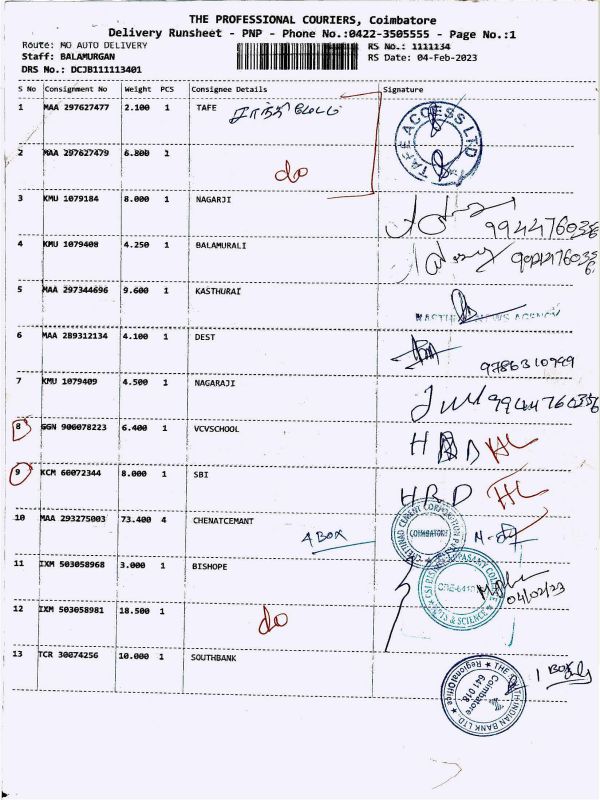 THE PROFESSIONAL COURIERS, Coimbatore
Delivery Runsheet - PNP - Phone No.:0422-3505555 - Page No.:1
Route: MO AUTO DELIVERY RS No.: 1111134
Staff: BALAMURGAN RS Date: 04-Feb-2023
DRS No.: DCJB111113401
S No Consignment No Weight PCS Consignee Details Signature
1 MAA 297627477 2.100 1 TAFE
TAFE ACCESS LTD
2 MAA 297627479 6.800 1
do
3 KMU 1079184 8.000 1 NAGARJI
9944760356
4 KMU 1079408 4.250 1 BALAMURALI
5 MAA 297344696 9.600 1 KASTHURAI
NEWS AGENCY
6 MAA 289312134 4.100 1 DEST
9786310999
7 KMU 1079409 4.500 1 NAGARAJI
9944760356
8 GGN 906078223 6.400 1 VCVSCHOOL
9 KCM 60072344 8.000 1 SBI
HRD
10 MAA 293275003 73.400 4 CHENATCEMANT
4 BOX
COIMBATORE
11 IXM 503058968 3.000 1 BISHOPE
04/02/23
ARTS & SCIENCE
12 IXM 503058981 18.500 1
do
13 TCR 30074256 10.000 1 SOUTHBANK
1 BOX only
THE SOUTH INDIAN BANK LTD.
Regional Office
Coimbatore
641 018